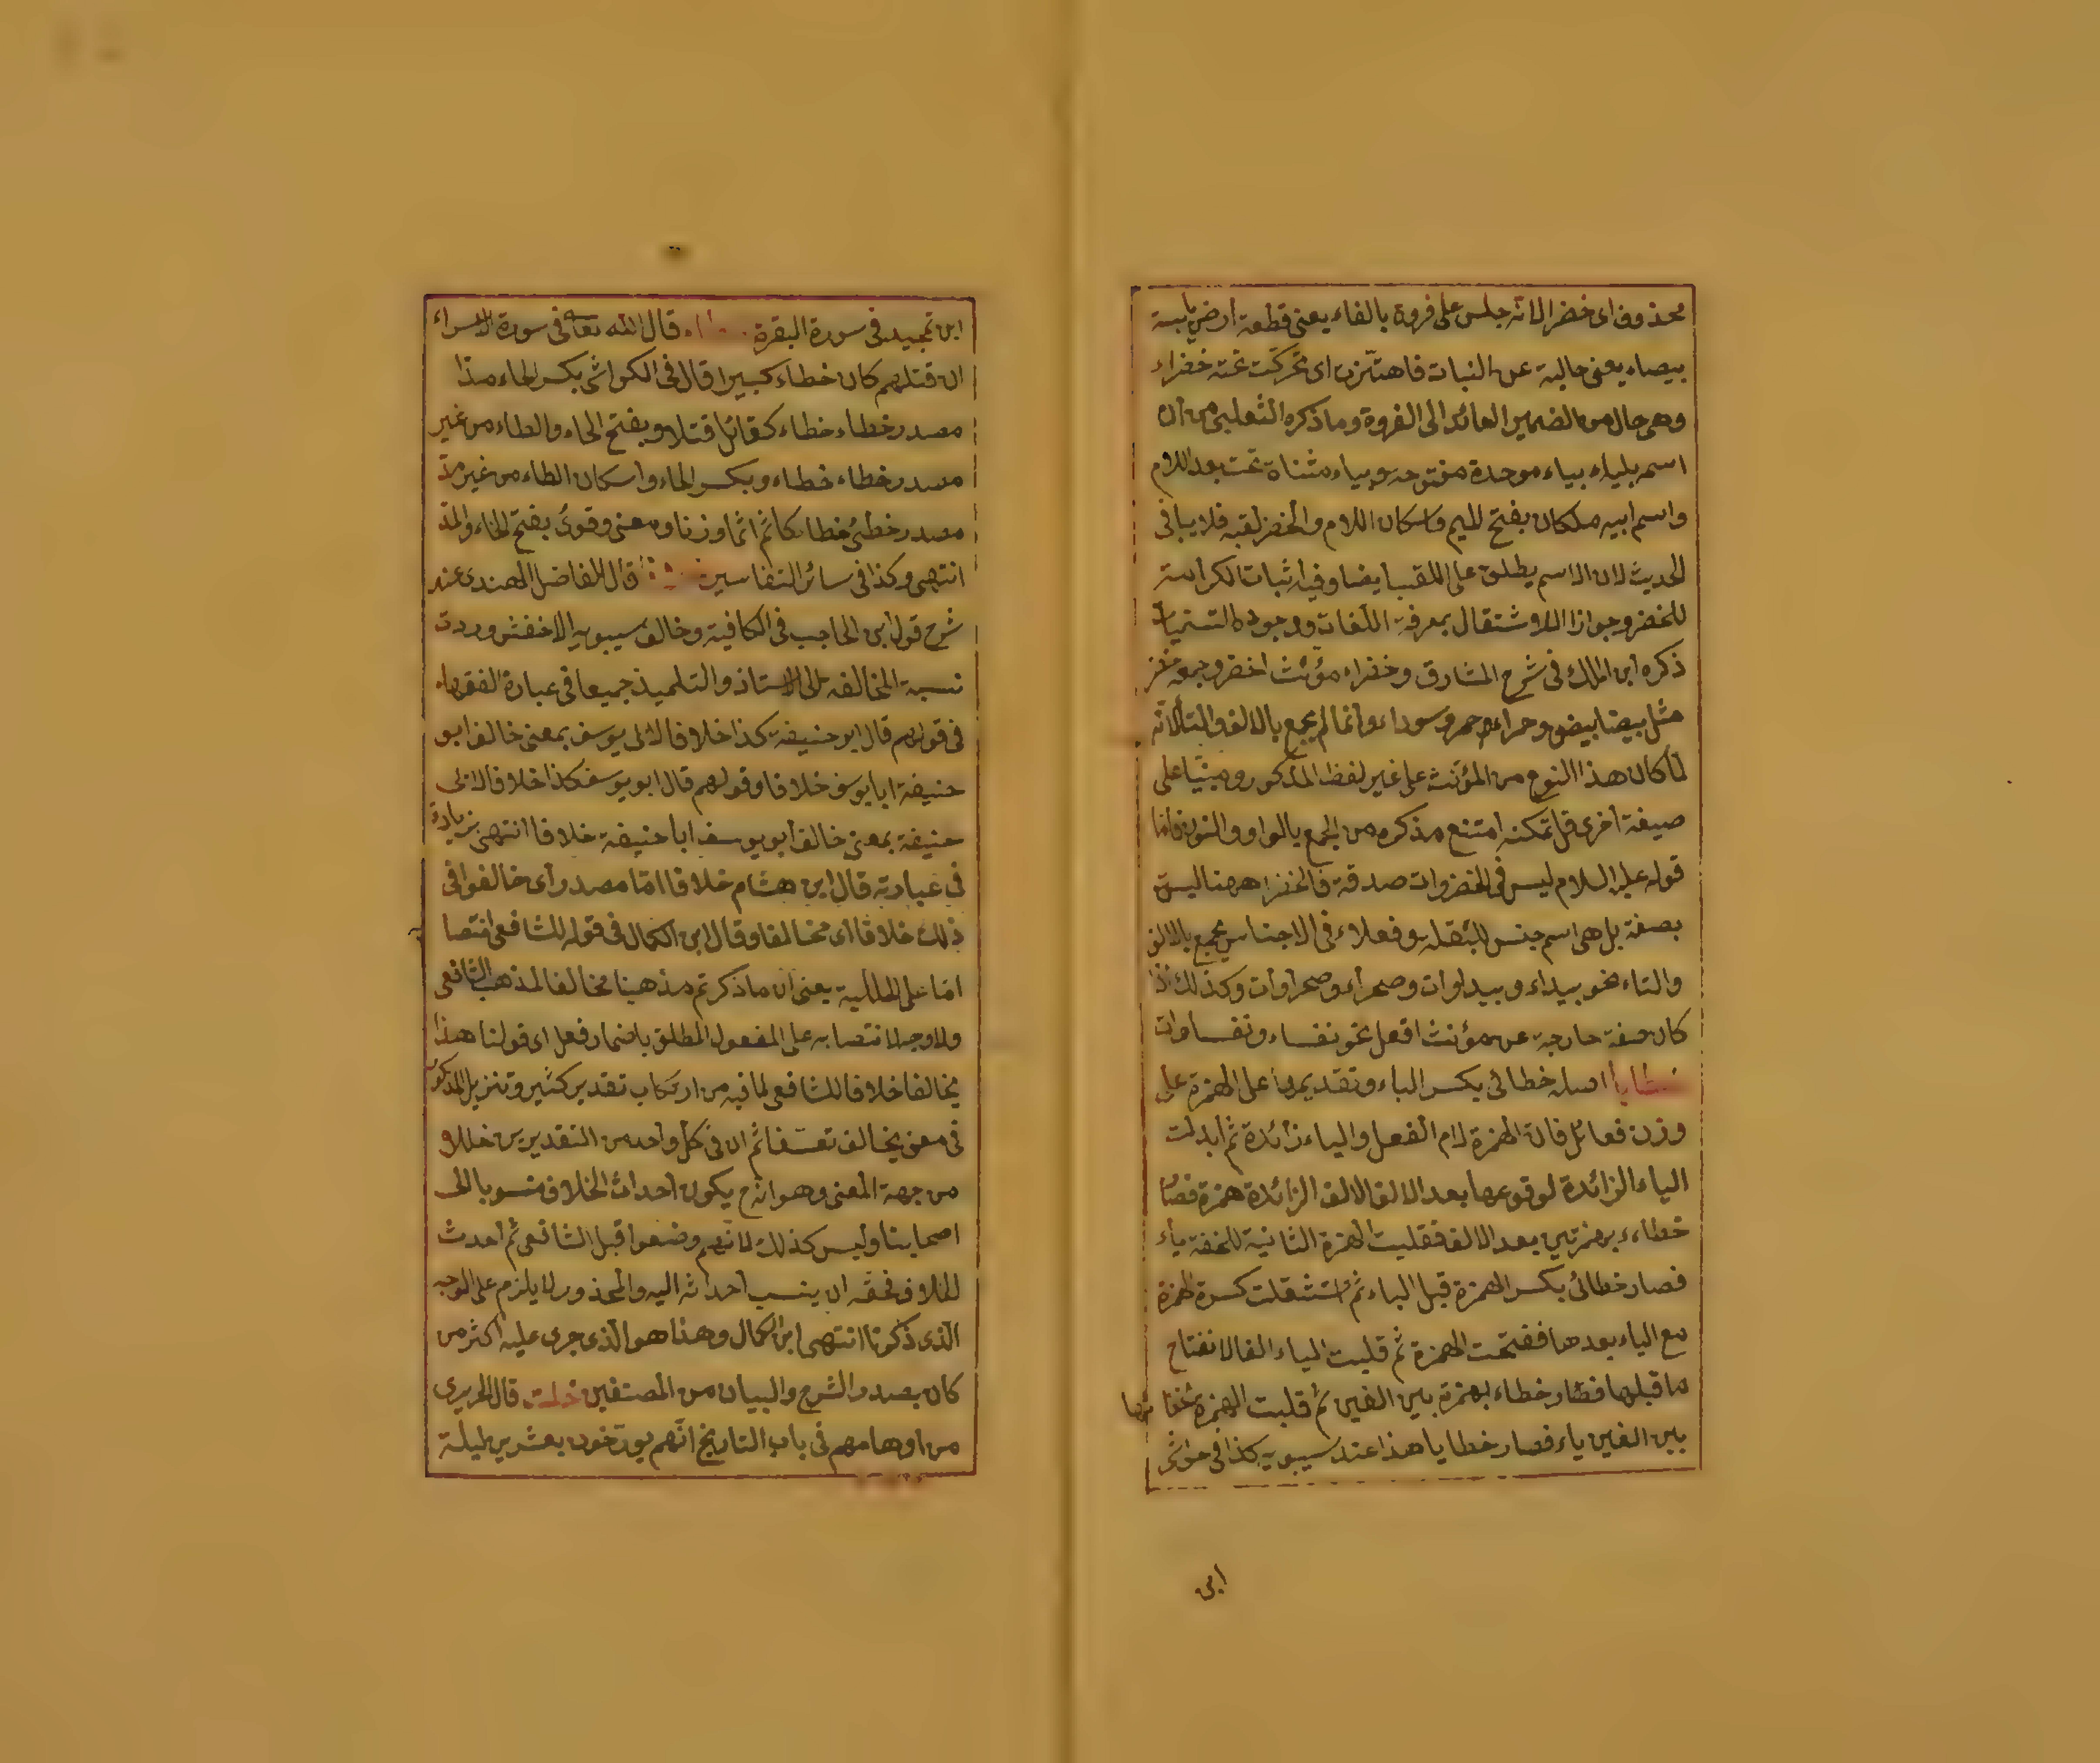 محذوف اى خضر الانه جلس على فروة بالفاء يعنى قطعة ارض يابسة
بيضاء يعنى خالية عن النبات فاهتزت اى تحركت تحته خضراء
وهى حال من الضمير العائد الى الفروة وما ذكره الثعلبى من ان
اسمه بلياء بباء موحدة مفتوحة وبياء مثناة تحت بعد اللام
واسم ابيه ملكان بفتح الميم واسكان اللام والخضر لقبه فلا ينافى
الحديث لان الاسم يطلق على اللقب ايضا وفيه اثبات الكرامة
للخضر وجواز الاشتقال بمعرفة اللغات ووجود التسميات
ذكره ابن الملك فى شرح المشارق وخضراء مؤنث اخضر وجمعه خضر
مثل بيضا بيض وحمراء وحمر وسوداء وانما لم يجمع بالالف والتاء لانه
لما كان هذا النوع من المؤنث على غير لفظ المذكور ومبنيا على
صيغة اخرى قل تمكنه امتنع مذكره من الجمع بالواو والنون فاما
قوله عليه السلام ليس فى الخضروات صدقة فالخضرا ههنا ليس
بصفة بل هى اسم جنس للبقلة وفعلاء فى الاجناس يجمع بالالف
والتاء نحو بيداء وبيداوات وصحراء وصحراوات وكذلك اذا
كان صفة خارجة عن مؤنث افعل نحو نفساء ونفساوات
خطايا اصله خطائى بكسر الياء وتقديمها على الهمزة على
وزن فعائل فان الهمزة لام الفعل والياء زائدة ثم ابدلت
الياء الزائدة لوقوعها بعد الالف الالف الزائدة همزة فصار
خطاءء بهمزتين بعد الالف فقلبت الهمزة الثانية للخفة ياء
فصار خطائى بكسر الهمزة قبل الياء ثم استثقلت كسرة الهمزة
مع الياء بعدها ففتحت الهمزة ثم قلبت الياء الفا لانفتاح
ما قبلها فصار خطاء بهمزة بين الفين ثم قلبت الهمزة
بين الفين ياء فصار خطايا هذا عند سيبويه كذا فى حواشى
ابن
ابن تمجيد فى سورة البقرة قال الله تعالى فى سورة الاسراء
ان قتلهم كان خطاء كبيرا قال فى الكواشى بكسر الخاء مدا
مصدر خطاء خطاء كقاتل قتلا وبفتح الخاء والطاء من غير
مصدر خطاء خطاء وبكسر الخاء واسكان الطاء من غير مد
مصدر خطئ خطا كاثم اثما وزنا ومعنى وقرئ بفتح الخاء والمد
انتهى وكذا فى سائر التفاسير قال الفاضل الهندى عند
شرح قول ابن الحاجب فى الكافية وخالف سيبويه الاخفش وردت
نسبة المخالفة الى الاستاذ والتلميذ جميعا فى عبارة الفقهاء
فى قولهم قال ابو حنيفة كذا خلافا لابى يوسف بمعنى خالف ابو
حنيفة ابا يوسف خلافا وقولهم قال ابو يوسف كذا خلافا لابى
حنيفة بمعنى خالف ابو يوسف ابا حنيفة خلافا انتهى بزيادة
فى عبارته قال ابن هشام خلافا اما مصدر اى خالفوا فى
ذلك خلافا اى مخالفا وقال ابن الكمال فى قوله للشافعى انتصا
اما على الحالية يعنى ان ما ذكرتم مذهبنا مخالفا لمذهب الشافعى
ولا وجه لانتصابه على المفعول المطلق باضمار فعل اى قولنا هذا
يخالفا خلافا للشافعى لما فيه من ارتكاب تقدير كثير وتنزيل المذكور
فى معنى يخالف تعسفا ثم ان فى كل واحد من التقديرين خللا
من جهة المعنى وهو انه ح يكون احداث الخلاف منسوبا الى
اصحابنا وليس كذلك لانهم وضعوا قبل الشافعى ثم احدث
الخلاف فحقه ان ينسب احداثه اليه والمحذور لا يلزم على الوجه
الذى ذكرنا انتهى ابن الكمال وهذا هو الذى جرى عليه اكثر من
كان بصدد الشرح والبيان من المصنفين خلت قال الحريرى
من اوهامهم فى باب التاريخ انهم يورخون بعشرين ليلة